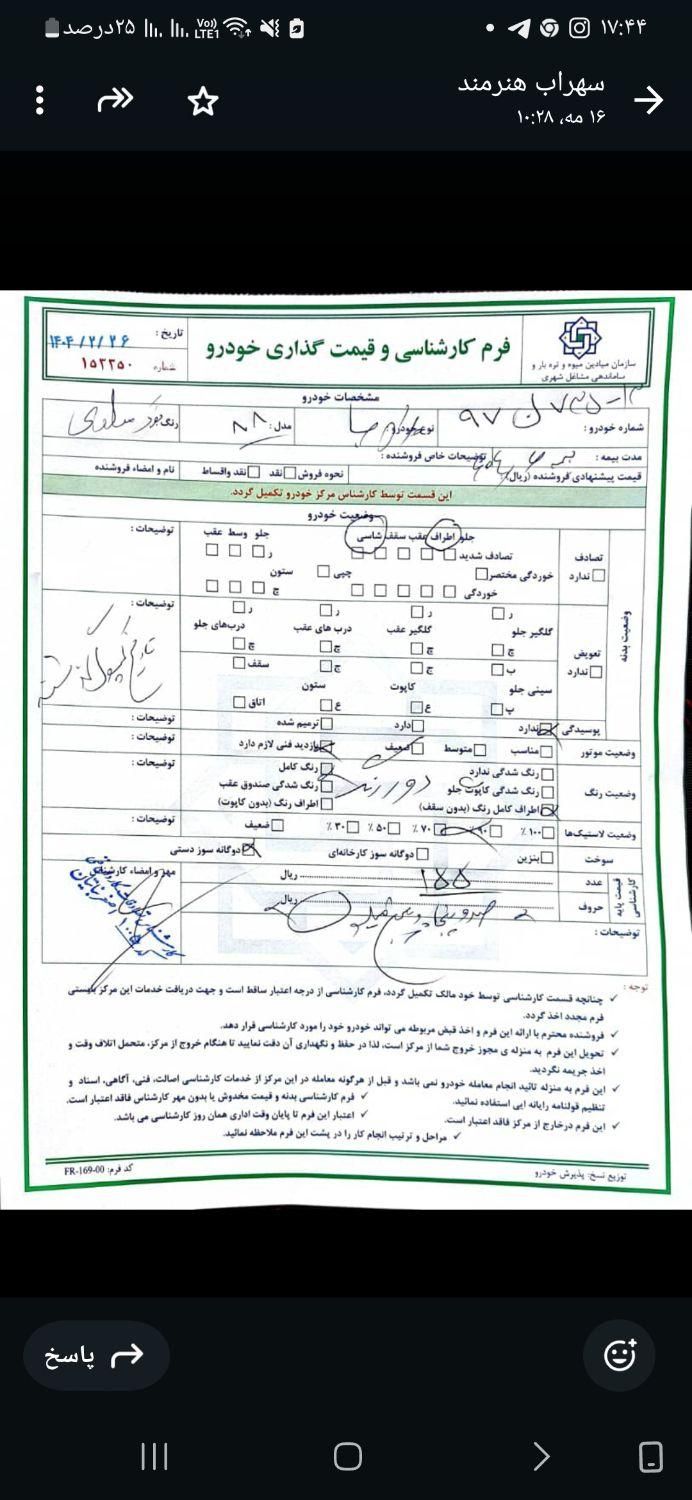 ۱۷:۴۴
۲۵درصد
Vo))
LTE1
سهراب هنرمند
۱۶ مه، ۱۰:۲۸
سازمان میادین میوه و تره بار و
ساماندهی مشاغل شهری
فرم کارشناسی و قیمت گذاری خودرو
تاریخ : ۱۴۰۴/۲/۲۶
شماره ۱۵۲۲۵۰
مشخصات خودرو
شماره خودرو :
نوع خودرو :
مدل : ۸۸
رنگ :
مدت بیمه :
توضیحات خاص فروشنده :
قیمت پیشنهادی فروشنده (ریال):
نحوه فروش : نقد نقد واقساط
نام و امضاء فروشنده
این قسمت توسط کارشناس مرکز خودرو تکمیل گردد.
وضعیت خودرو
وضعیت بدنه
تصادف
ندارد
جلو اطراف عقب سقف شاسی
جلو وسط عقب
توضیحات :
تصادف شدید
ر
خوردگی مختصر
چپی
ستون
خوردگی
چ
تعویض
ندارد
ر ر ر ر
توضیحات :
گلگیر جلو گلگیر عقب درب های عقب درب‌های جلو
چ چ چ چ
پ چ چ سقف
سینی جلو کاپوت ستون
پ ع ع اتاق
پوسیدگی ندارد دارد ترمیم شده توضیحات :
وضعیت موتور مناسب متوسط ضعیف بازدید فنی لازم دارد توضیحات :
وضعیت رنگ
رنگ شدگی ندارد رنگ کامل توضیحات :
رنگ شدگی کاپوت جلو رنگ شدگی صندوق عقب
اطراف کامل رنگ (بدون سقف) اطراف رنگ (بدون کاپوت)
دور رنگ
وضعیت لاستیک‌ها ۱۰۰٪ ۹۰٪ ۷۰٪ ۵۰٪ ۳۰٪ ضعیف توضیحات :
سوخت بنزین دوگانه سوز کارخانه‌ای دوگانه سوز دستی
کارشناسی قیمت پایه
عدد ۱۵۵ ریال
مهر و امضاء کارشناس
حروف ریال
توضیحات :
توجه :
✓ چنانچه قسمت کارشناسی توسط خود مالک تکمیل گردد، فرم کارشناسی از درجه اعتبار ساقط است و جهت دریافت خدمات این مرکز بایستی
فرم مجدد اخذ گردد.
✓ فروشنده محترم با ارائه این فرم و اخذ قبض مربوطه می تواند خودرو خود را مورد کارشناسی قرار دهد.
✓ تحویل این فرم به منزله ی مجوز خروج شما از مرکز است، لذا در حفظ و نگهداری آن دقت نمایید تا هنگام خروج از مرکز، متحمل اتلاف وقت و
اخذ جریمه نگردید.
✓ این فرم به منزله تائید انجام معامله خودرو نمی باشد و قبل از هرگونه معامله در این مرکز از خدمات کارشناسی اصالت، فنی، آگاهی، اسناد و
تنظیم قولنامه رایانه ایی استفاده نمائید.
✓ فرم کارشناسی بدنه و قیمت مخدوش یا بدون مهر کارشناس فاقد اعتبار است.
✓ این فرم درخارج از مرکز فاقد اعتبار است.
✓ اعتبار این فرم تا پایان وقت اداری همان روز کارشناسی می باشد.
✓ مراحل و ترتیب انجام کار را در پشت این فرم ملاحظه نمائید.
توزیع نسخ: پذیرش خودرو
کد فرم: FR-169-00
پاسخ